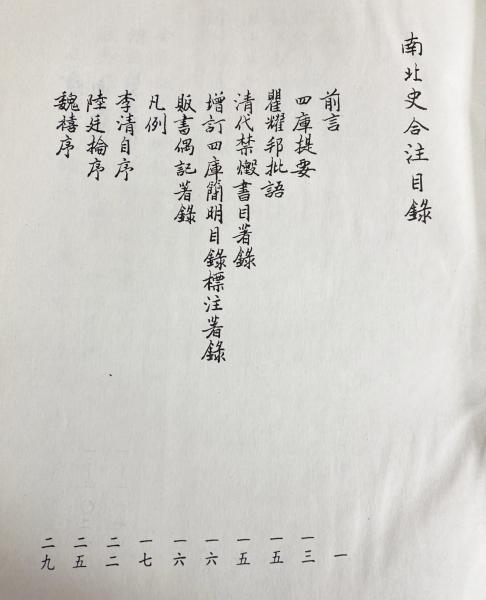 南北史合注目錄
前言 一
四庫提要 一三
瞿耀邦批語 一五
清代禁燬書目著錄 一五
增訂四庫簡明目錄標注著錄 一六
販書偶記著錄 一六
凡例 一七
李清自序 二二
陸廷掄序 二五
魏禧序 二九